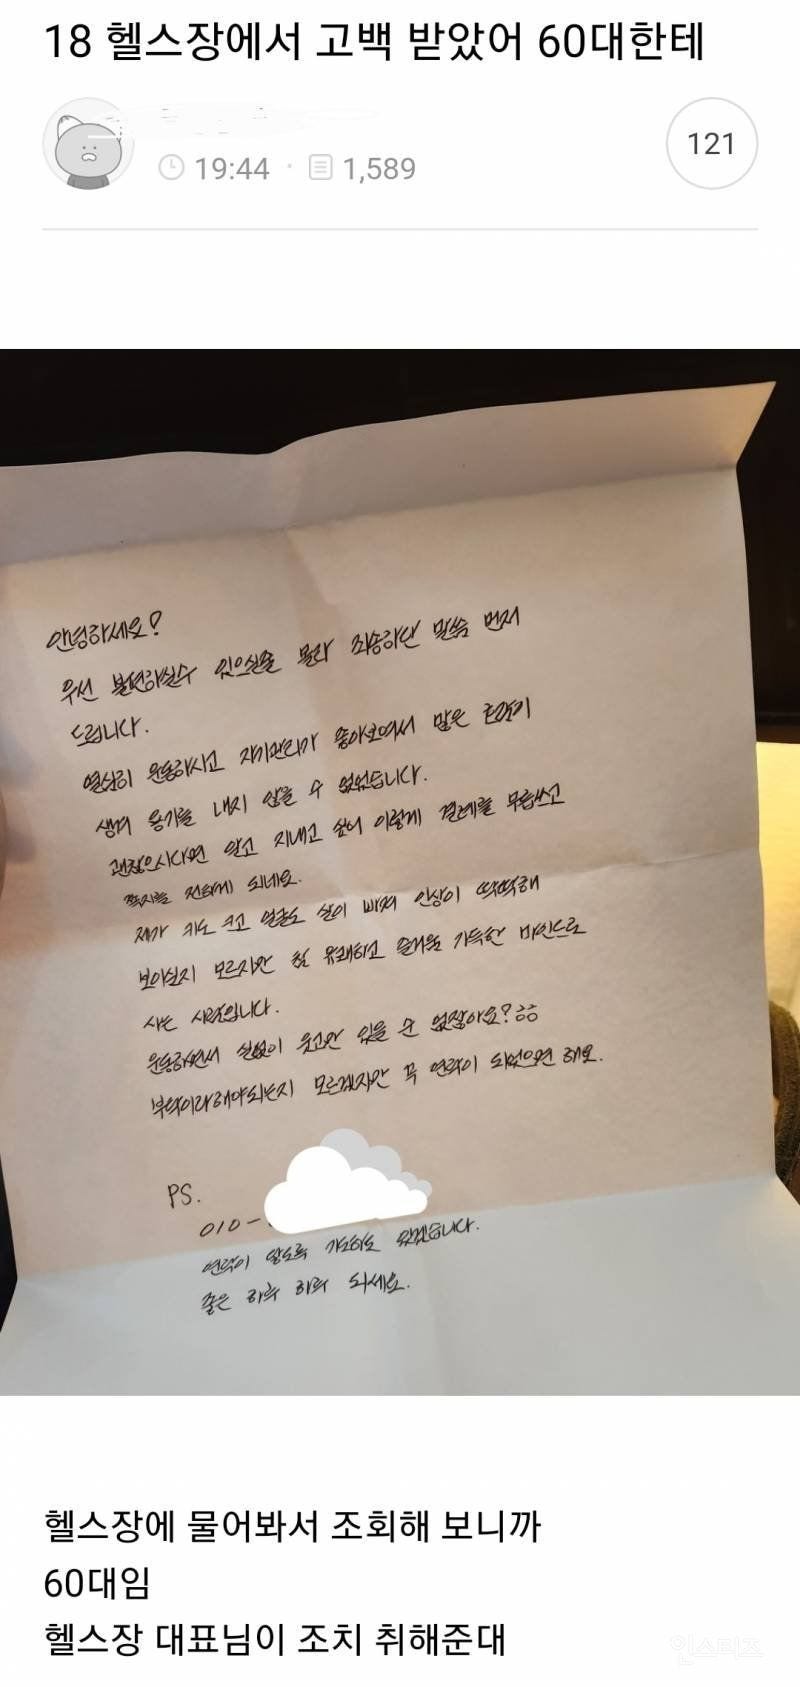 18 헬스장에서 고백 받았어 60대한테
19:44 · 1,589
121
안녕하세요?
우선 불편하실수 있으실줄 몰라 죄송하단 말씀 먼저
드립니다.
열심히 운동하시고 자기관리가 좋아보여서 많은 호감이
생겨 용기를 내지 않을 수 없었습니다.
괜찮으시다면 알고 지내고 싶어 이렇게 결례를 무릅쓰고
쪽지를 전하게 되네요.
제가 키도 크고 얼굴도 살이 빠져 인상이 딱딱해
보이실지 모르지만 참 유쾌하고 즐거움 가득한 마인드로
사는 사람입니다.
운동하면서 실없이 웃고만 있을 순 없잖아요? ㅎㅎ
부탁이라해야되는지 모르겠지만 꼭 연락이 되었으면 해요.
PS.
010-
연락이 닿도록 기도하고 있겠습니다.
좋은 하루 하루 되세요.
헬스장에 물어봐서 조회해 보니까
60대임
헬스장 대표님이 조치 취해준대
인스티즈